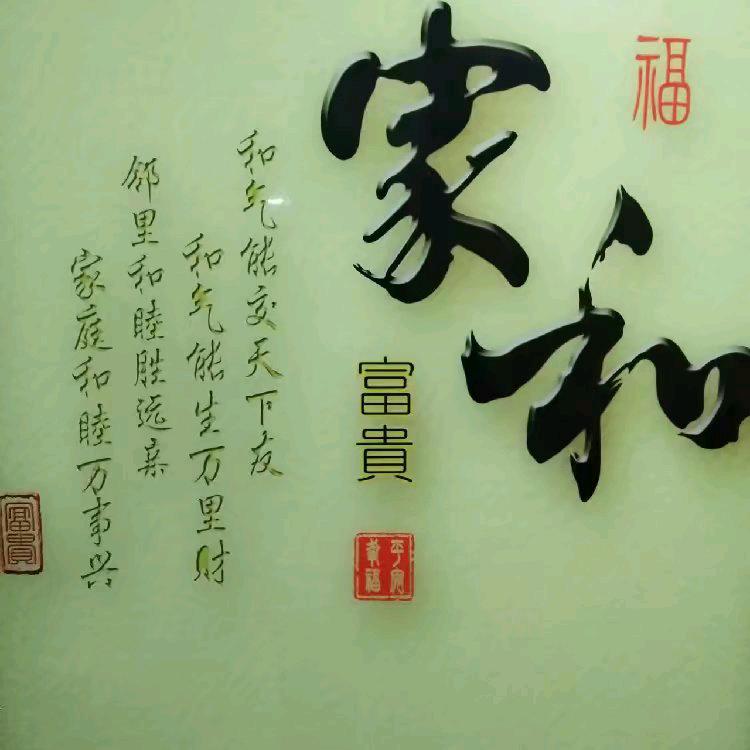 福
家和
富貴
和气能交天下友
和气能生万里财
邻里和睦胜远亲
家庭和睦万事兴
平安
幸福
富貴